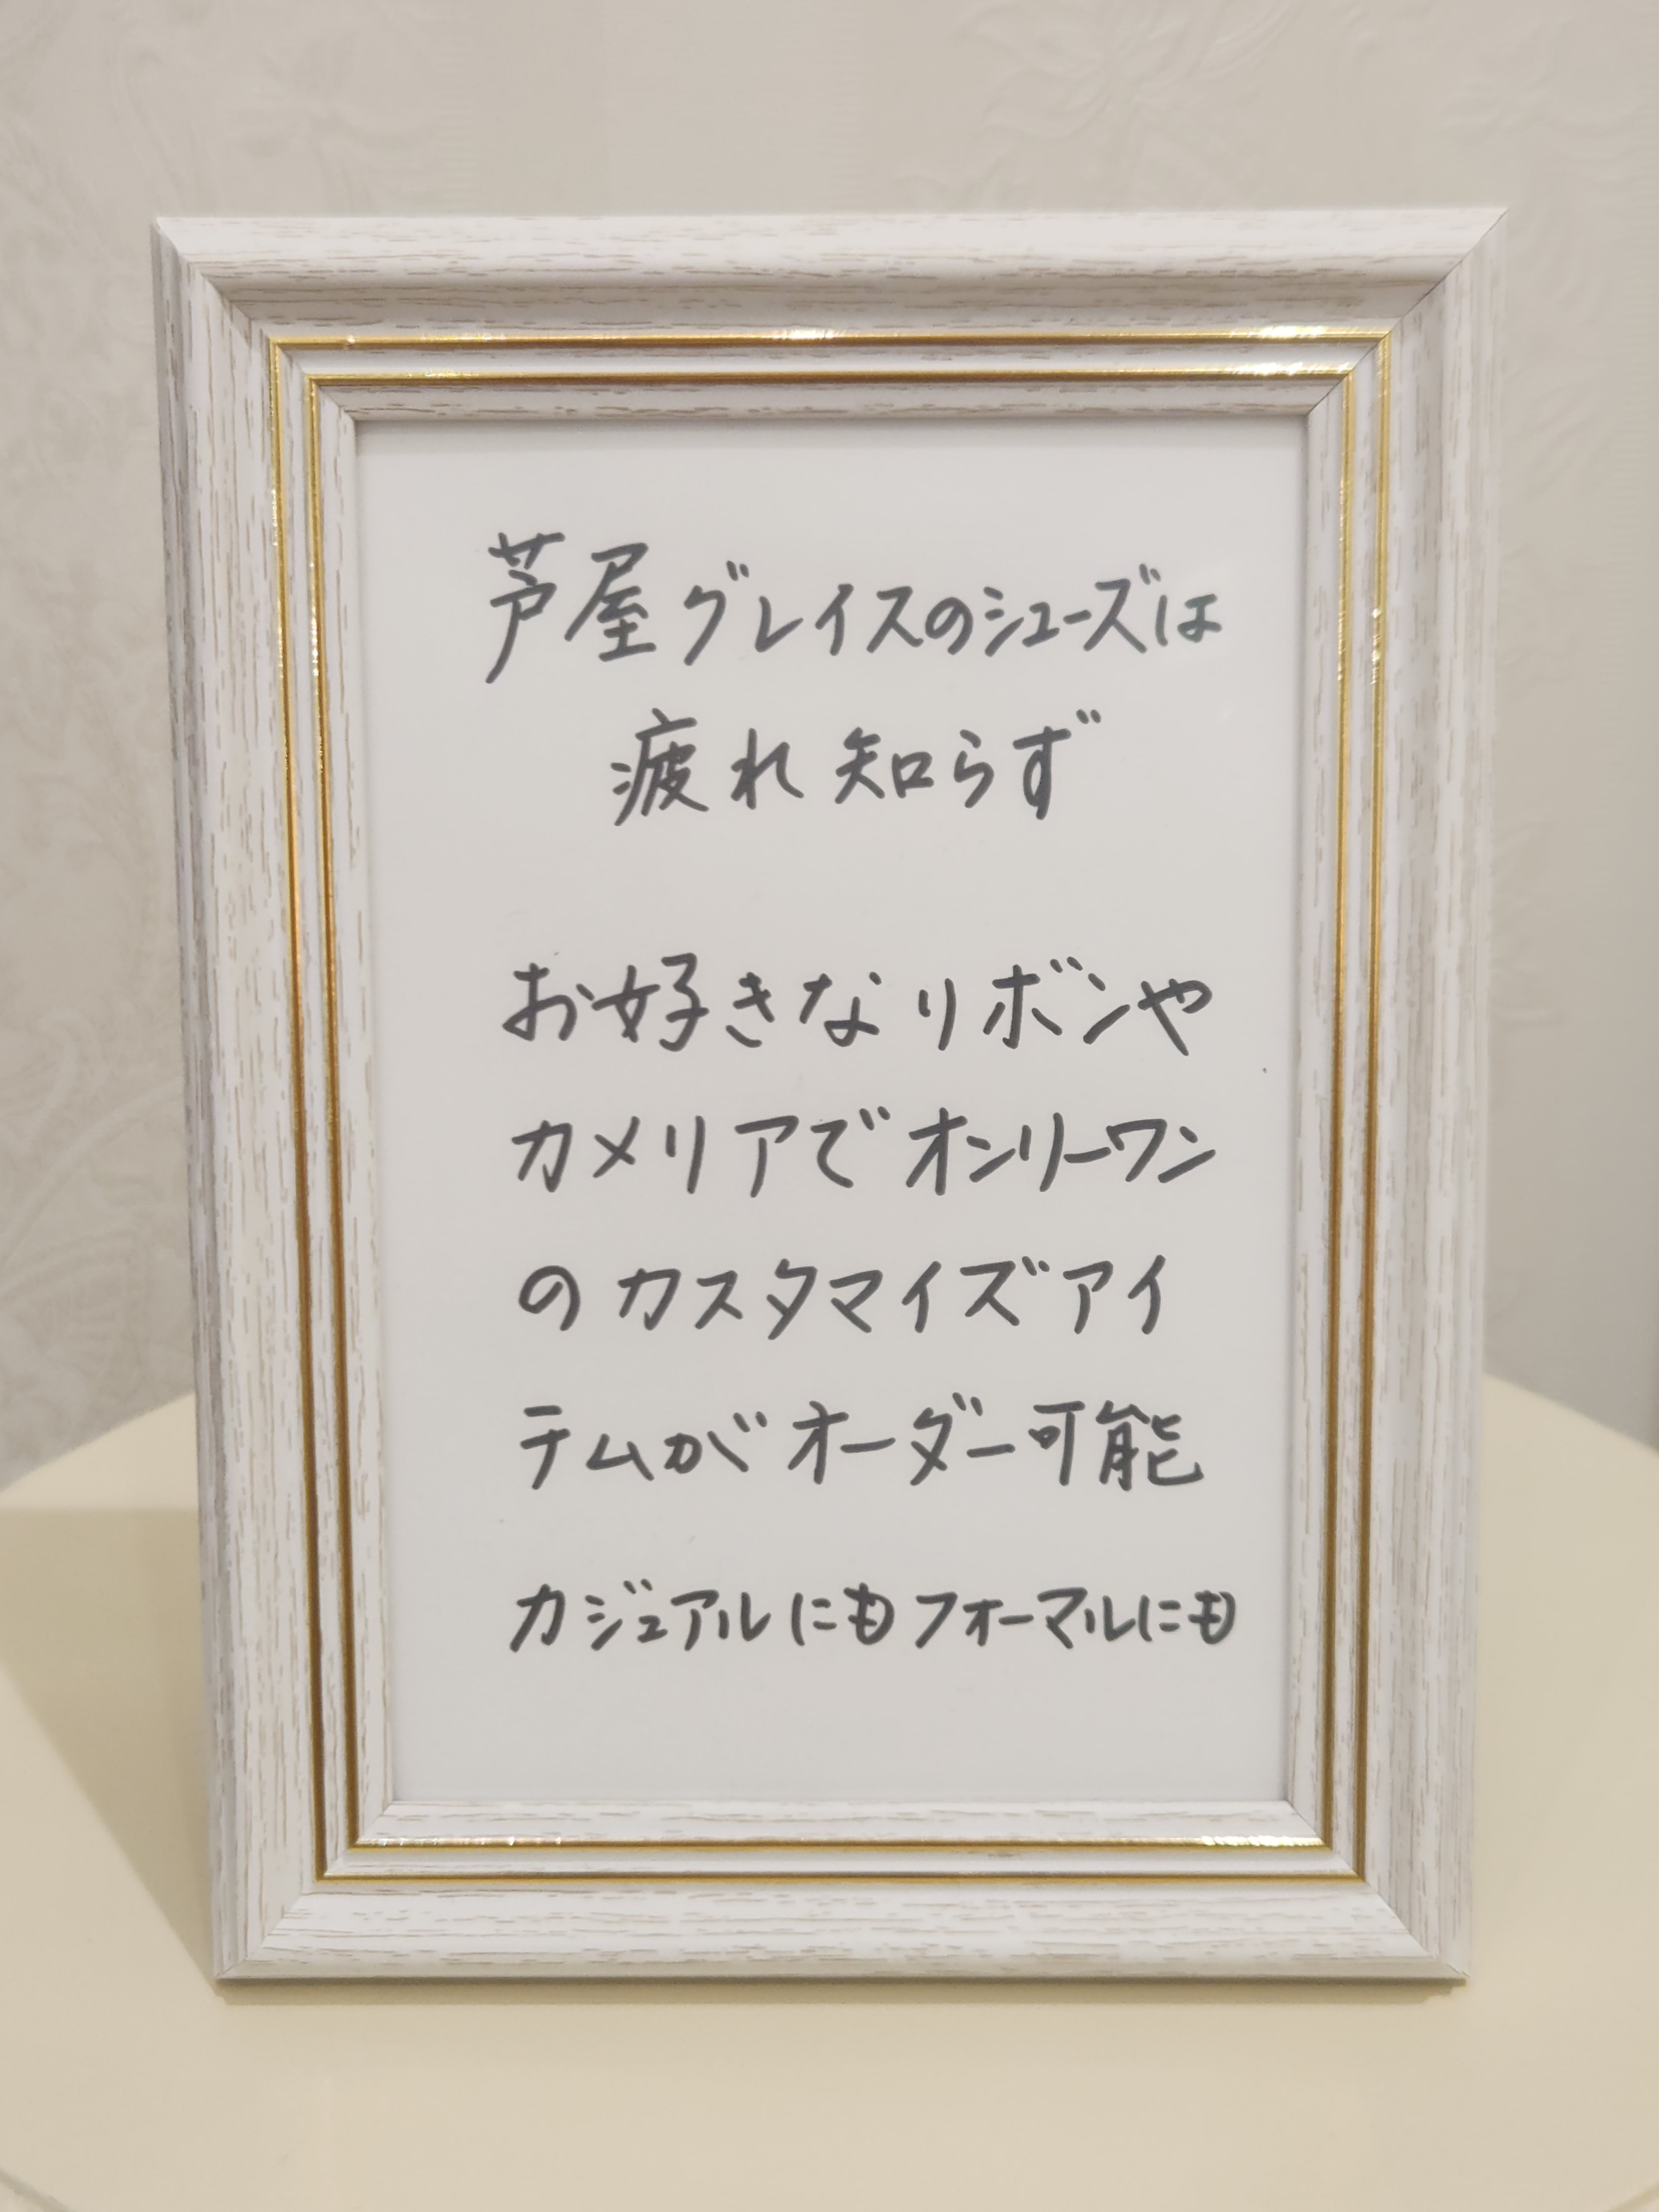 芦屋グレイスのシューズは
疲れ知らず
お好きなリボンや
カメリアでオンリーワン
のカスタマイズアイ
テムがオーダー可能
カジュアルにもフォーマルにも